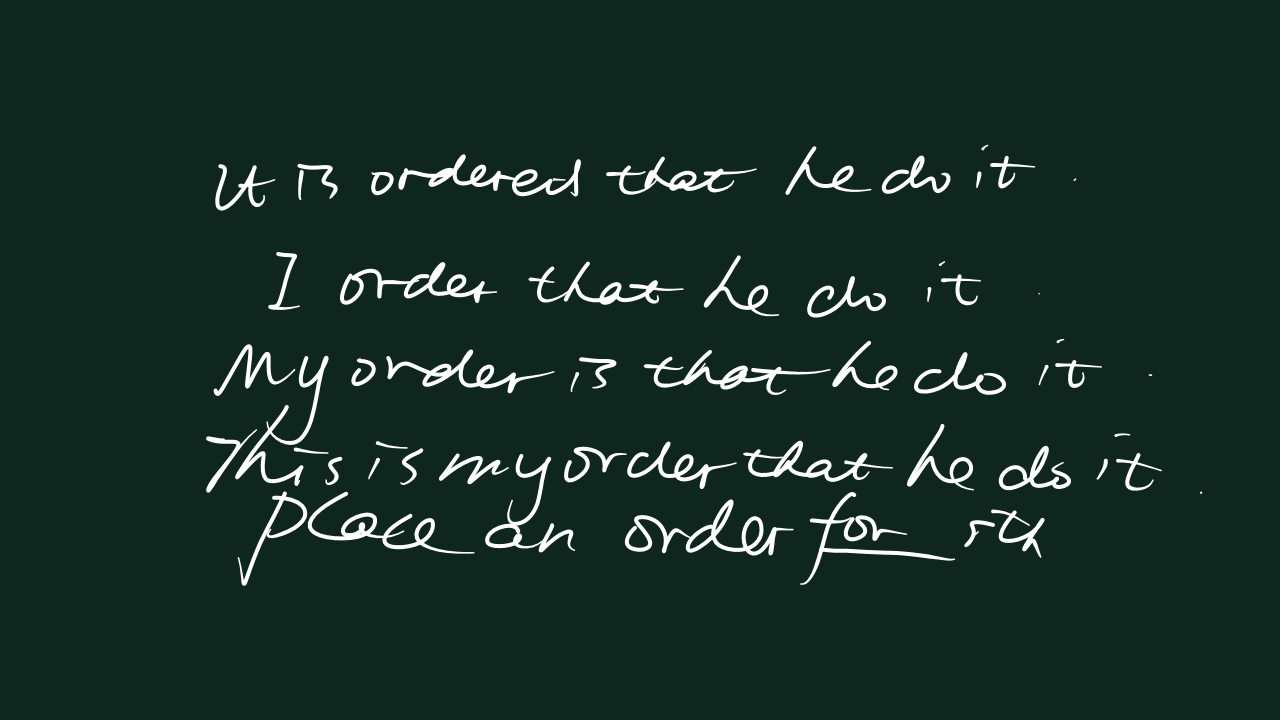 It is ordered that he do it.
I order that he do it.
My order is that he do it.
This is my order that he do it.
place an order for sth